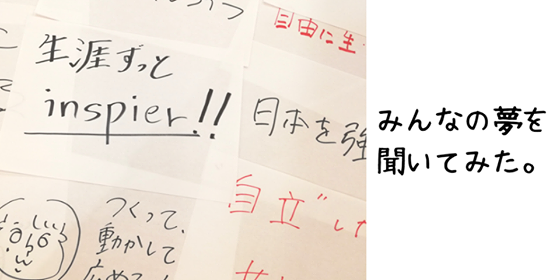 自由に生
生涯ずっと
inspier!!
日本を強
自立した
つくって、
動かして
広める
みんなの夢を
聞いてみた。